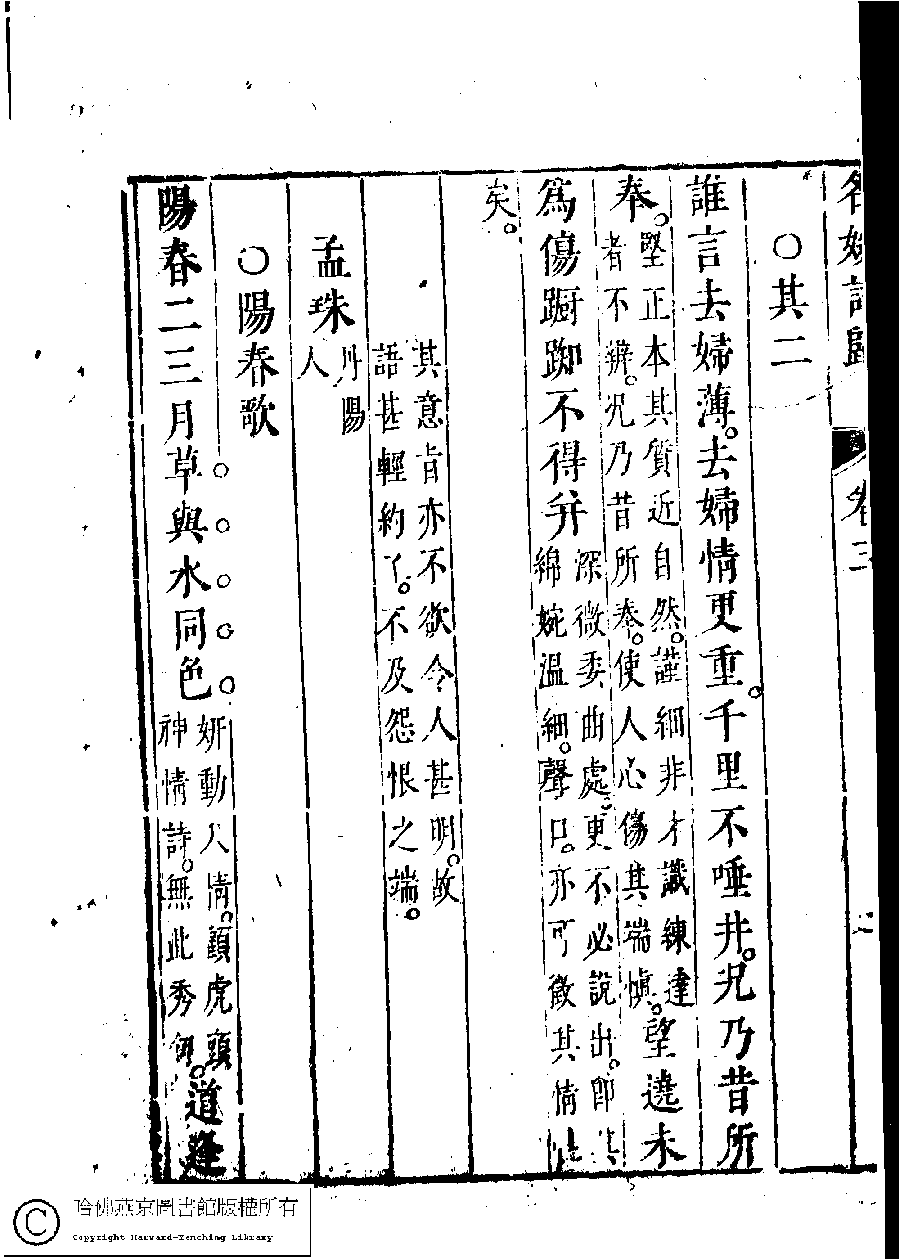 名媛詩歸 卷三
○其二
誰言去婦薄。去婦情更重。千里不唾井。况乃昔所
奉。堅正本其質近自然。謹細非才識練達
者不辨。况乃昔所奉。使人心傷其端愼。望遶未
爲傷蹰踟不得并深微委曲處。更不必說出。卽其
綿婉溫細。聲口。亦可徵其情性
矣。
其意旨亦不欲令人甚明。故
語甚輕約了。不及怨恨之端。
孟珠丹陽
人
○陽春歌
陽春二三月草與水同色。妍動人情。顧虎頭
神情詩。無此秀句。道逢
哈佛燕京圖書館版權所有
Copyright Harvard-Yenching Library